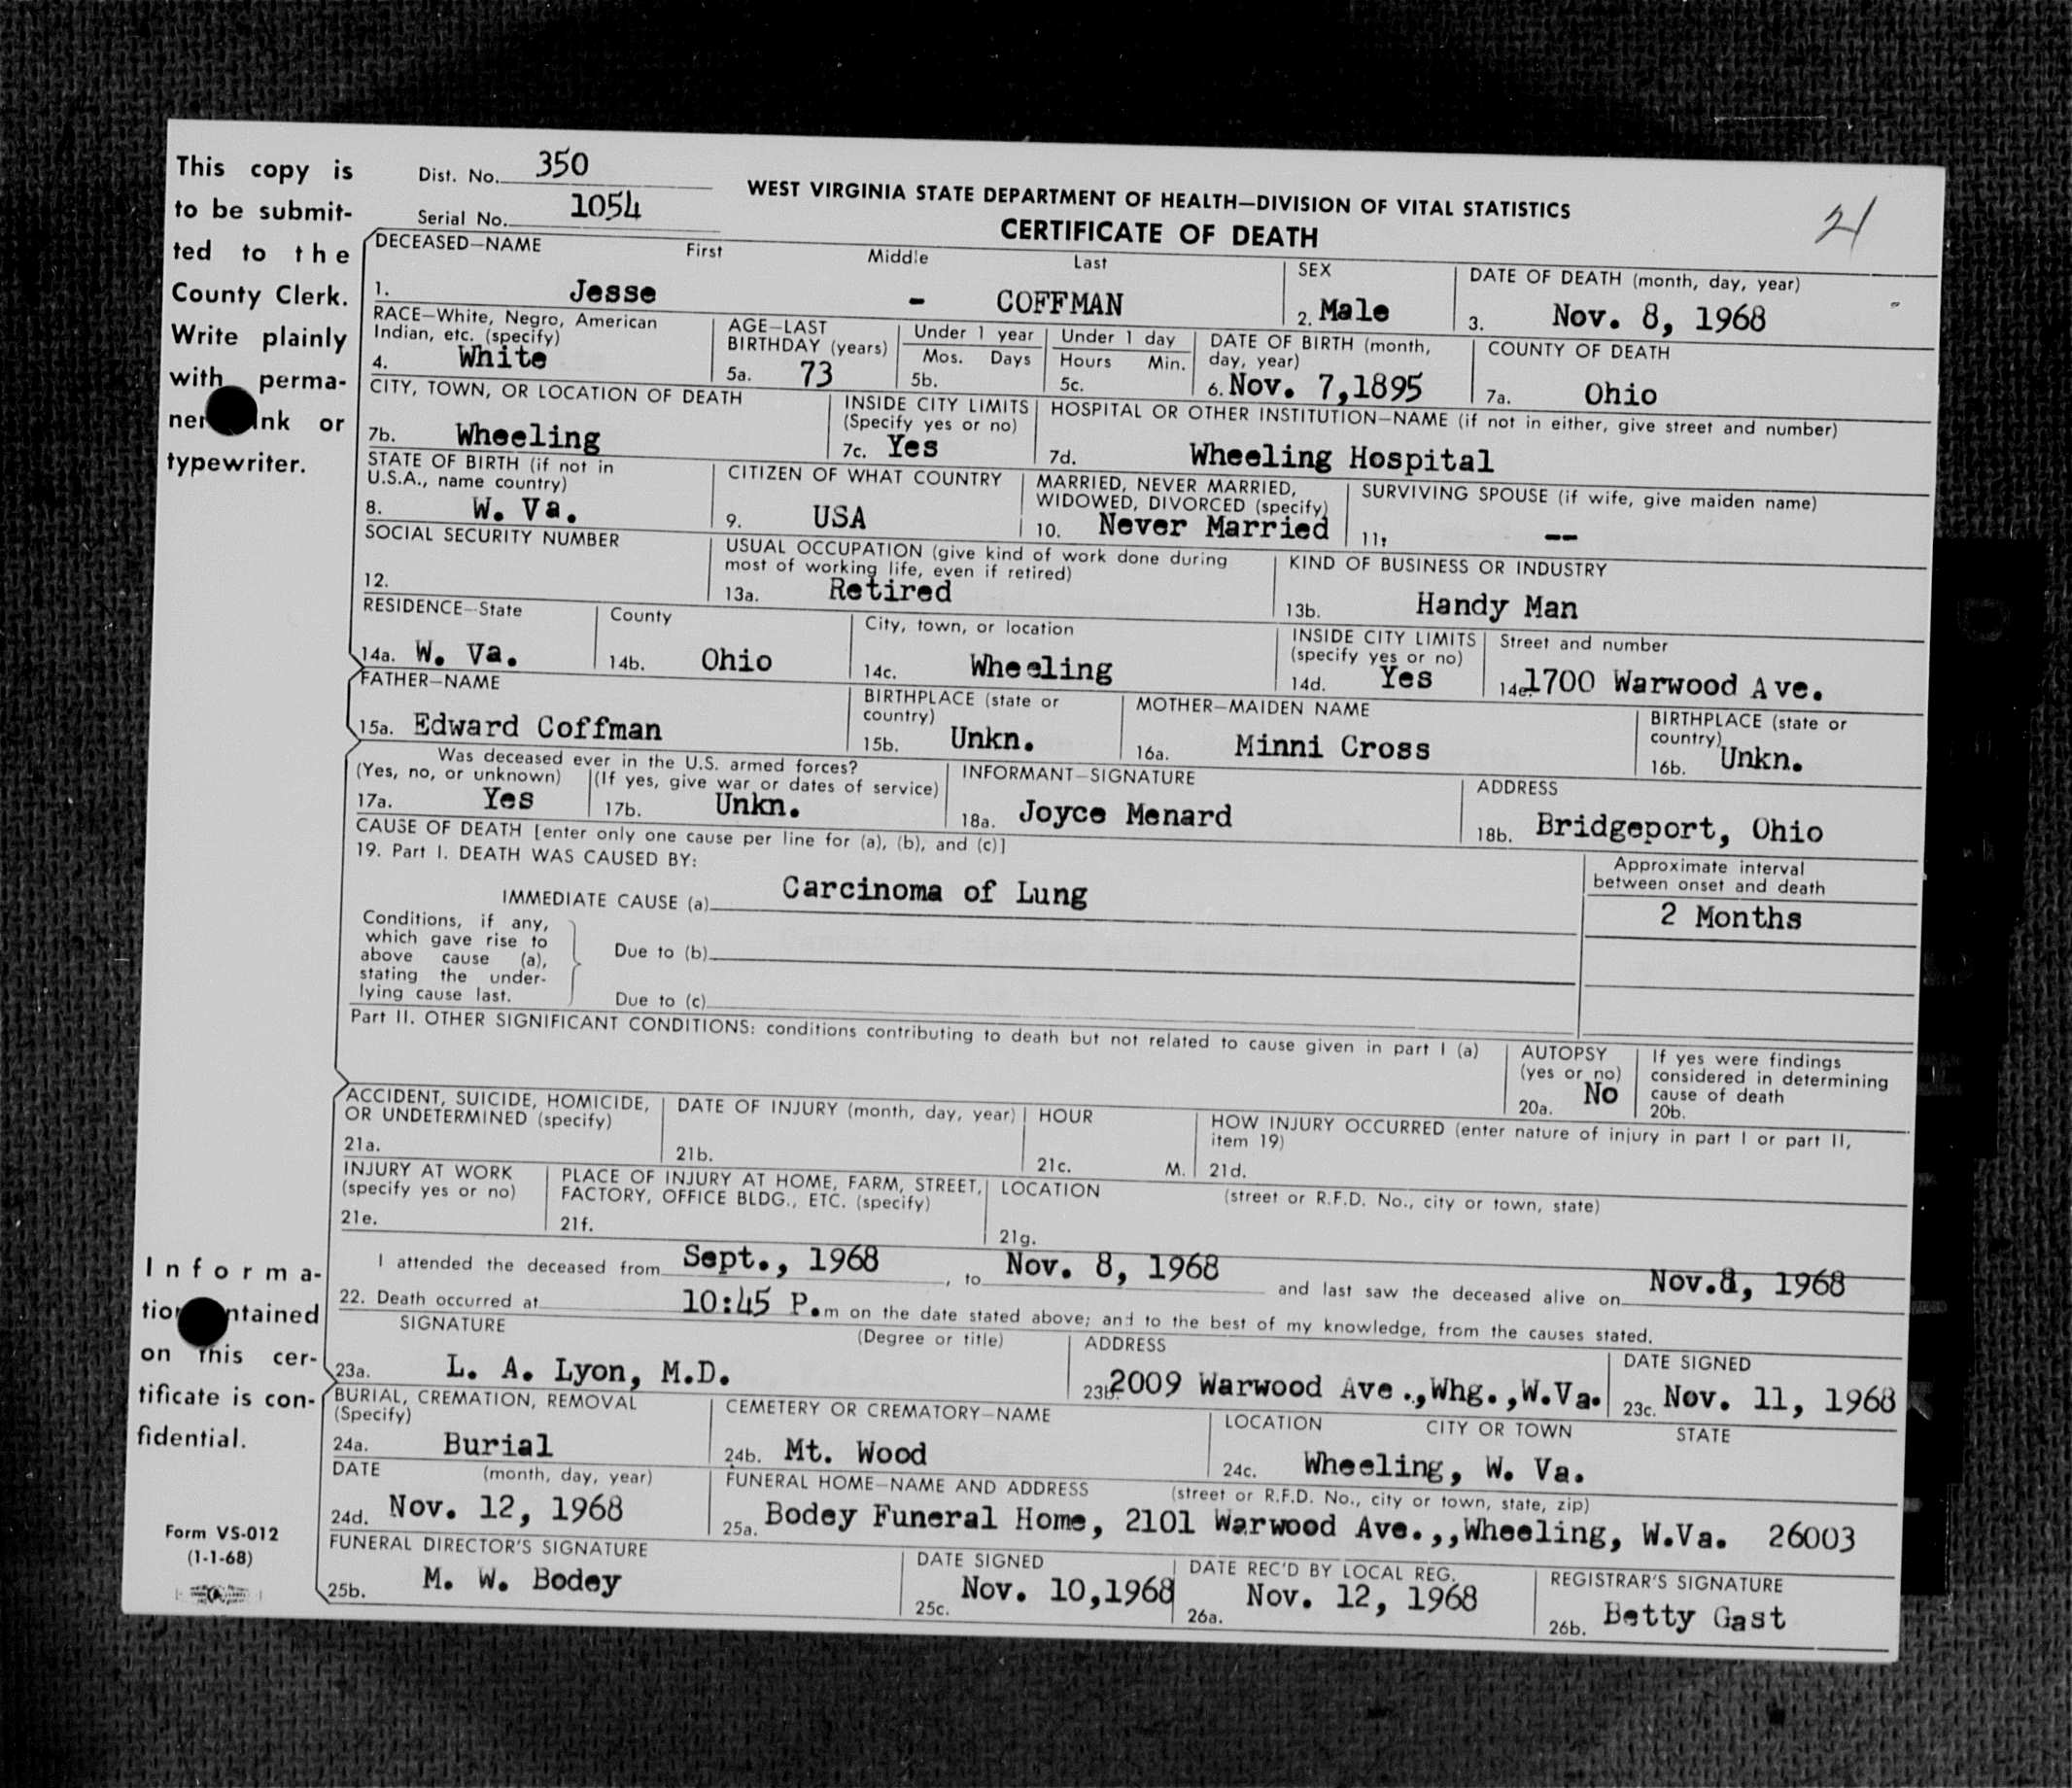 This copy is
to be submit-
ted to the
County Clerk.
Write plainly
with perma-
ink or
typewriter.
Dist. No. 350
Serial No. 1054
WEST VIRGINIA STATE DEPARTMENT OF HEALTH—DIVISION OF VITAL STATISTICS
CERTIFICATE OF DEATH
21
DECEASED—NAME First Middle Last
1. Jesse - COFFMAN
SEX
2. Male
DATE OF DEATH (month, day, year)
3. Nov. 8, 1968
RACE—White, Negro, American
Indian, etc. (specify)
4. White
AGE—LAST
BIRTHDAY (years)
5a. 73
Under 1 year
Mos. Days
5b.
Under 1 day
Hours Min.
5c.
DATE OF BIRTH (month,
day, year)
6. Nov. 7,1895
COUNTY OF DEATH
7a. Ohio
CITY, TOWN, OR LOCATION OF DEATH
7b. Wheeling
INSIDE CITY LIMITS
(Specify yes or no)
7c. Yes
HOSPITAL OR OTHER INSTITUTION—NAME (if not in either, give street and number)
7d. Wheeling Hospital
STATE OF BIRTH (if not in
U.S.A., name country)
8. W. Va.
CITIZEN OF WHAT COUNTRY
9. USA
MARRIED, NEVER MARRIED,
WIDOWED, DIVORCED (specify)
10. Never Married
SURVIVING SPOUSE (if wife, give maiden name)
11. --
SOCIAL SECURITY NUMBER
12.
USUAL OCCUPATION (give kind of work done during
most of working life, even if retired)
13a. Retired
KIND OF BUSINESS OR INDUSTRY
13b. Handy Man
RESIDENCE—State
14a. W. Va.
County
14b. Ohio
City, town, or location
14c. Wheeling
INSIDE CITY LIMITS
(specify yes or no)
14d. Yes
Street and number
14e. 1700 Warwood Ave.
FATHER—NAME
15a. Edward Coffman
BIRTHPLACE (state or
country)
15b. Unkn.
MOTHER—MAIDEN NAME
16a. Minni Cross
BIRTHPLACE (state or
country)
16b. Unkn.
Was deceased ever in the U.S. armed forces?
(Yes, no, or unknown) (If yes, give war or dates of service)
17a. Yes 17b. Unkn.
INFORMANT—SIGNATURE
18a. Joyce Menard
ADDRESS
18b. Bridgeport, Ohio
CAUSE OF DEATH [enter only one cause per line for (a), (b), and (c)]
19. Part I. DEATH WAS CAUSED BY:
Approximate interval
between onset and death
IMMEDIATE CAUSE (a) Carcinoma of Lung
2 Months
Conditions, if any,
which gave rise to
above cause (a),
stating the under-
lying cause last.
Due to (b)
Due to (c)
Part II. OTHER SIGNIFICANT CONDITIONS: conditions contributing to death but not related to cause given in part I (a)
AUTOPSY
(yes or no)
20a. No
If yes were findings
considered in determining
cause of death
20b.
ACCIDENT, SUICIDE, HOMICIDE,
OR UNDETERMINED (specify)
21a.
DATE OF INJURY (month, day, year)
21b.
HOUR
21c. M.
HOW INJURY OCCURRED (enter nature of injury in part I or part II,
item 19)
21d.
INJURY AT WORK
(specify yes or no)
21e.
PLACE OF INJURY AT HOME, FARM, STREET,
FACTORY, OFFICE BLDG., ETC. (specify)
21f.
LOCATION (street or R.F.D. No., city or town, state)
21g.
I attended the deceased from Sept., 1968, to Nov. 8, 1968 and last saw the deceased alive on Nov.8, 1968
22. Death occurred at 10:45 P.m on the date stated above; and to the best of my knowledge, from the causes stated.
SIGNATURE (Degree or title)
23a. L. A. Lyon, M.D.
ADDRESS
23b. 2009 Warwood Ave.,Whg.,W.Va.
DATE SIGNED
23c. Nov. 11, 1968
BURIAL, CREMATION, REMOVAL
(Specify)
24a. Burial
CEMETERY OR CREMATORY—NAME
24b. Mt. Wood
LOCATION CITY OR TOWN STATE
24c. Wheeling, W. Va.
DATE (month, day, year)
24d. Nov. 12, 1968
FUNERAL HOME—NAME AND ADDRESS (street or R.F.D. No., city or town, state, zip)
25a. Bodey Funeral Home, 2101 Warwood Ave.,,Wheeling, W.Va. 26003
FUNERAL DIRECTOR'S SIGNATURE
25b. M. W. Bodey
DATE SIGNED
25c. Nov. 10,1968
DATE REC'D BY LOCAL REG.
26a. Nov. 12, 1968
REGISTRAR'S SIGNATURE
26b. Betty Gast
Informa-
on this cer-
tificate is con-
fidential.
Form VS-012
(1-1-68)